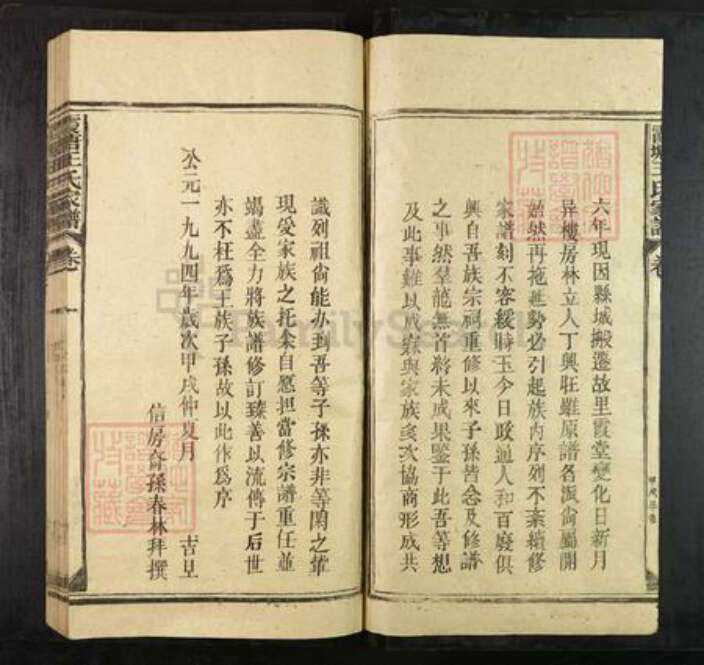 六年現因縣城搬遷故里霞堂變化日新月
异樓房林立人丁興旺雖原譜各派尚屬開
然再拖無勢必引起族內序列不紊續修
家譜刻不容緩時玉今日政通人和百廢俱
興自吾族宗祠重修以來子孫皆念及修譜
之事然羣龍無首將未成果鑒于此吾等想
及此事難以成與家族多次協商形成共
識列祖尚能办到吾等子孫亦非等閑之輩
現受家族之托余自愿担當修宗譜重任並
竭盡全力將族譜修訂臻善以流傳于后世
亦不枉爲王族子孫故以此作爲序
公元一九九四年歲次甲戌仲夏月 吉旦
信房奇孫春林拜撰
王氏家譜 卷一
王氏家譜 卷
FamilySearch